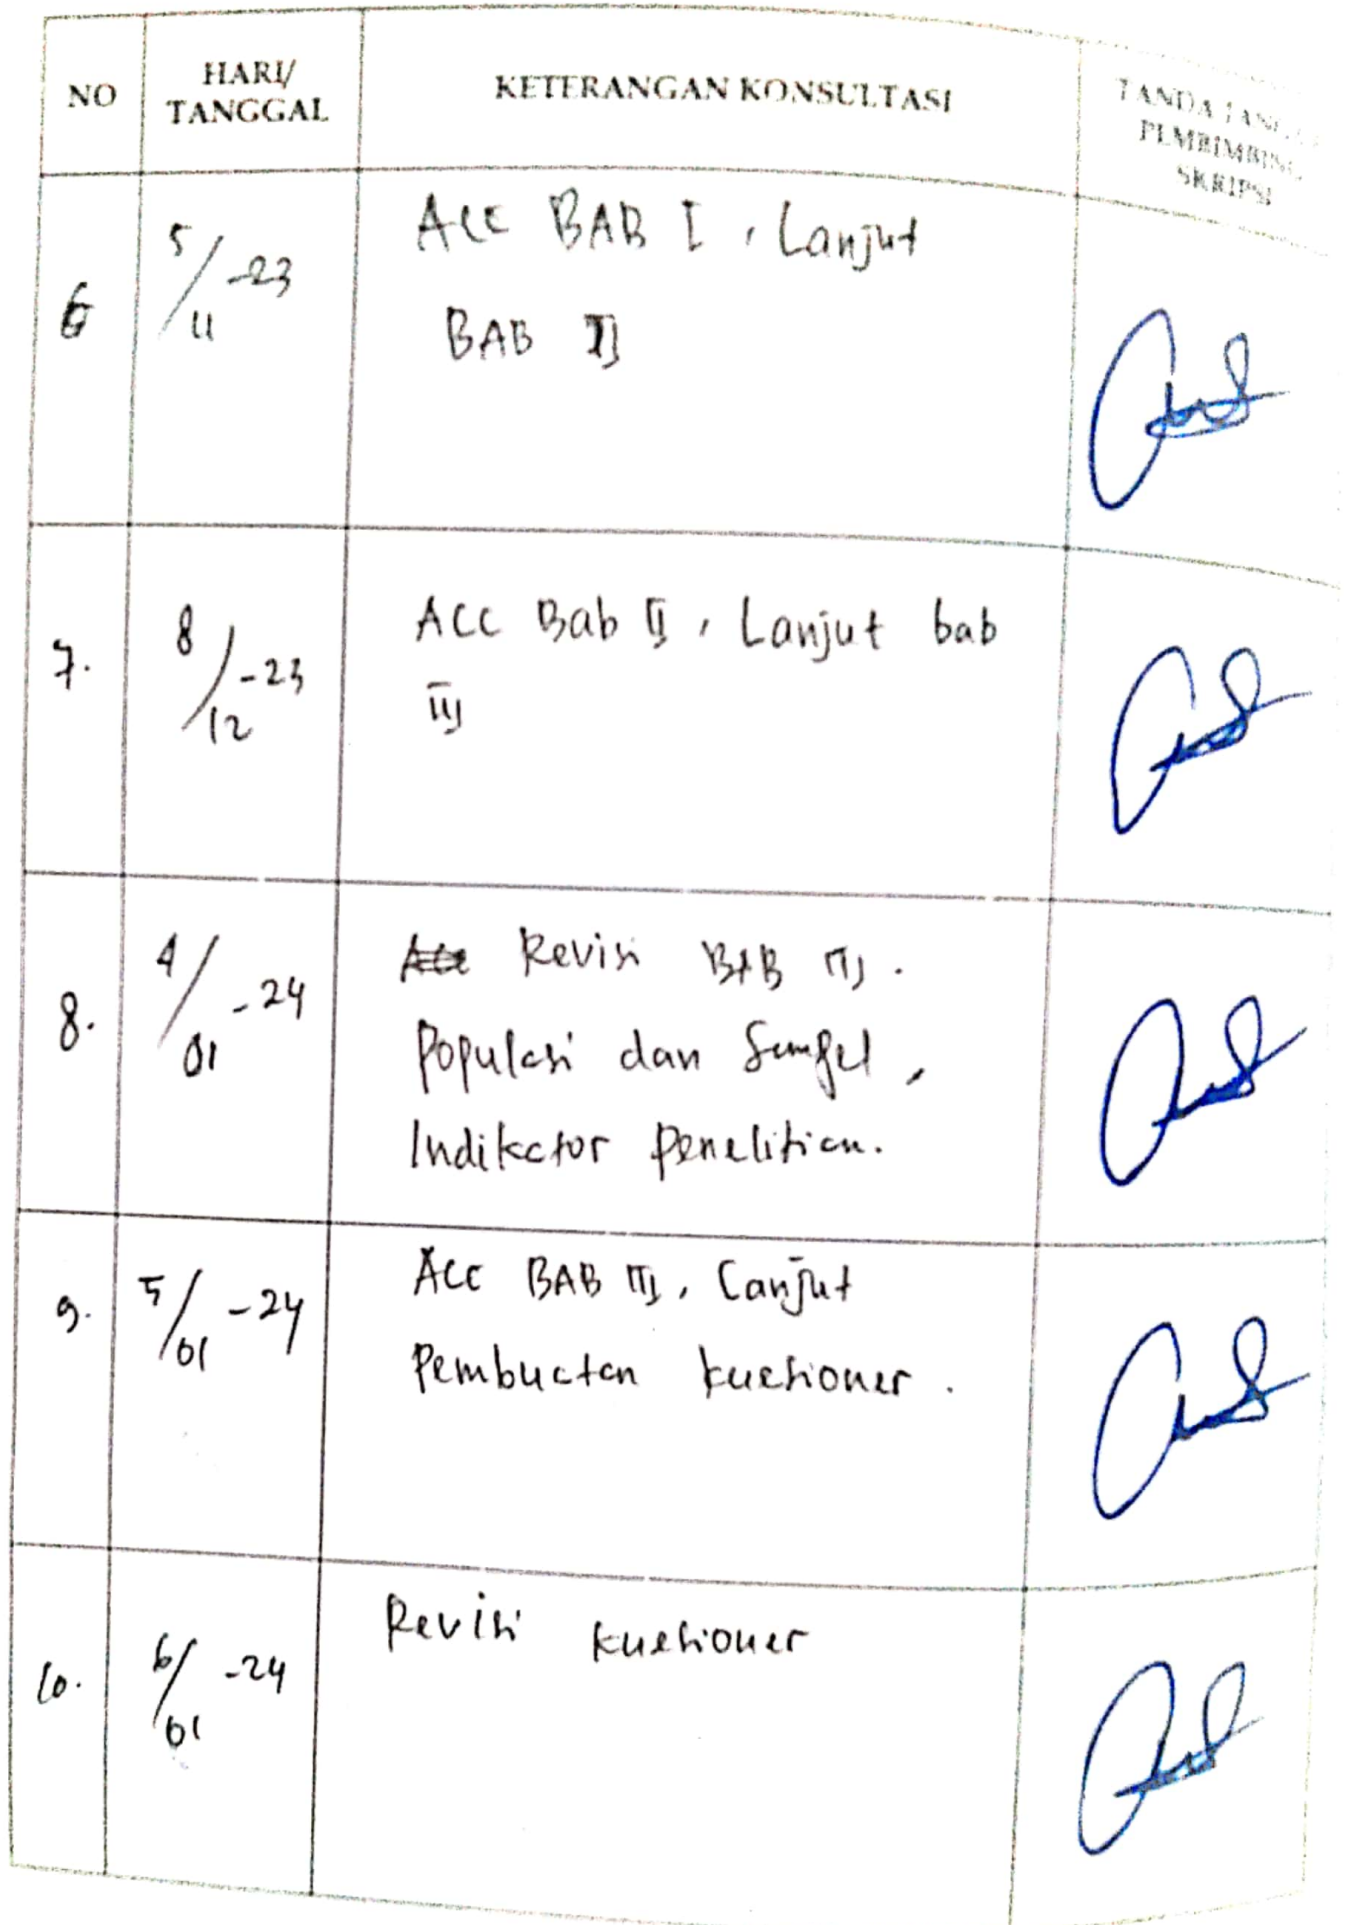 NO
HARI/
TANGGAL
KETERANGAN KONSULTASI
TANDA
PEMBIMBING
SKRIPSI
6
5/11-23
Acc BAB I, Lanjut
BAB II
7.
8/12-23
Acc Bab II, Lanjut bab
III
8.
4/01-24
Revisi BAB III.
Populasi dan Sampel,
Indikator penelitian.
9.
5/01-24
Acc BAB III, Lanjut
Pembuatan kuesioner.
10.
6/01-24
Revisi kuesioner